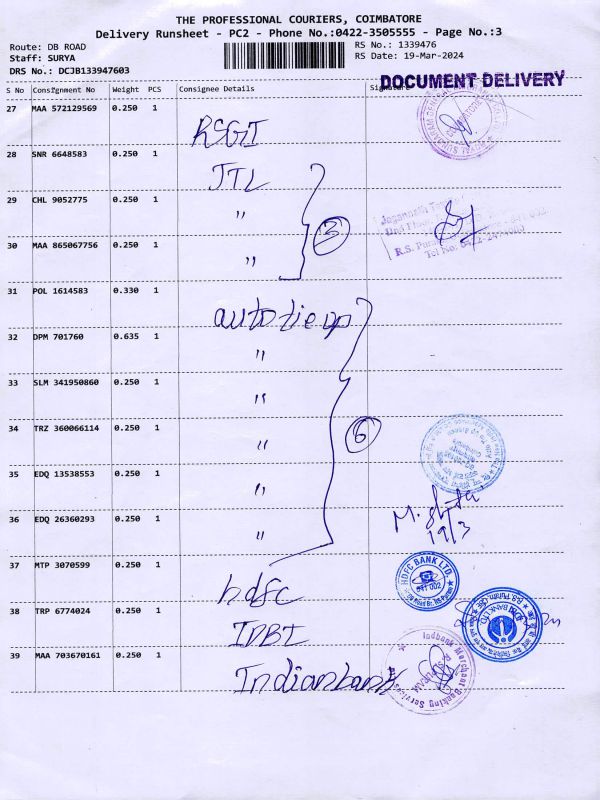 THE PROFESSIONAL COURIERS, COIMBATORE
Delivery Runsheet - PC2 - Phone No.:0422-3505555 - Page No.:3
Route: DB ROAD RS No.: 1339476
Staff: SURYA RS Date: 19-Mar-2024
DRS No.: DCJB133947603
DOCUMENT DELIVERY
S No Consignment No Weight PCS Consignee Details Signature
27 MAA 572129569 0.250 1
28 SNR 6648583 0.250 1 JTL
29 CHL 9052775 0.250 1 "
3
30 MAA 865067756 0.250 1 "
31 POL 1614583 0.330 1 auto tie up
32 DPM 701760 0.635 1 "
33 SLM 341950860 0.250 1 "
34 TRZ 360066114 0.250 1 "
6
35 EDQ 13538553 0.250 1 "
36 EDQ 26360293 0.250 1 "
19/3
37 MTP 3070599 0.250 1 hdfc
HDFC BANK LTD.
641 002
38 TRP 6774024 0.250 1 IDBI
39 MAA 703670161 0.250 1 Indianbank
Indbank Merchant Banking Services